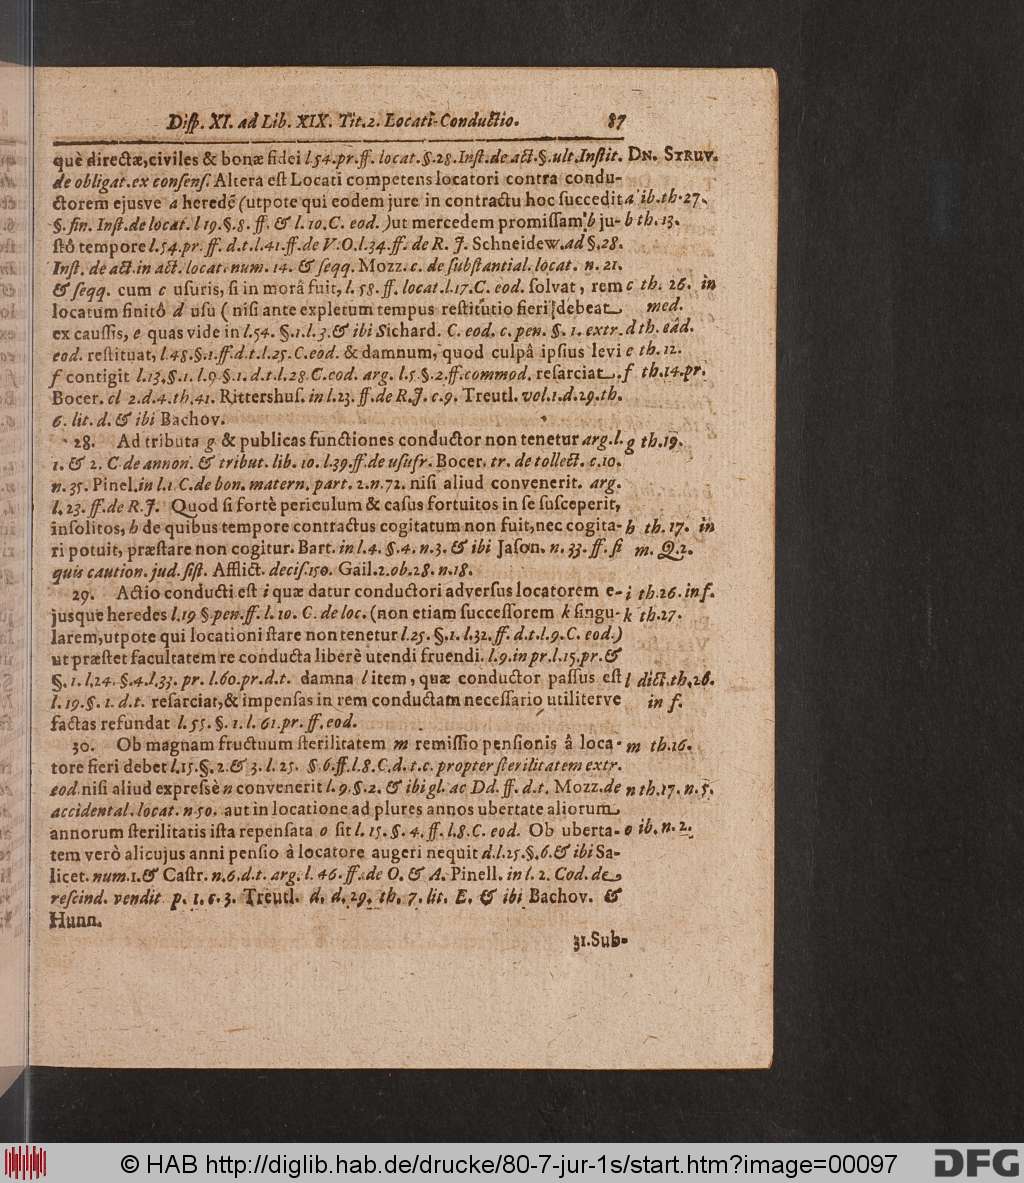 Disp. XI. ad Lib. XIX. Tit. 2. Locati-Conductio. 87
què directæ, civiles & bonæ fidei l. 54. pr. ff. locat. §. 28. Inst. de act. §. ult. Instit. DN. STRUV.
de obligat. ex consens. Altera est Locati competens locatori contra condu-
ctorem ejusve a heredẽ (utpote qui eodem jure in contractu hoc succedit a ib. th. 27.
§. fin. Inst. de locat. l 19. §. 8. ff. & l. 10. C. eod. ) ut mercedem promissam b ju- b th. 13.
stô tempore l. 54. pr. ff. d. t. l. 41. ff. de V. O. l. 34. ff. de R. J. Schneidew. ad §. 28.
Inst. de act. in act. locat. num. 14. & seqq. Mozz. c. de substantial. locat. n. 21.
& seqq. cum c usuris, si in morâ fuit, l. 58. ff. locat. l. 17. C. eod. solvat, rem c th. 26. in
locatum finitô d usu ( nisi ante expletum tempus restitutio fieri debeat med.
ex caussis, e quas vide in l. 54. §. 1. l. 3. & ibi Sichard. C. eod. c. pen. §. 1. extr. d th. eâd.
eod. restituat, l. 48. §. 1. ff. d. t. l. 25. C. eod. & damnum, quod culpâ ipsius levi e th. 12.
f contigit l. 13. §. 1. l. 9 §. 1. d. t. l. 28 C. eod. arg. l. 5 §. 2. ff. commod. resarciat. f th. 14. pr.
Bocer. cl 2. d. 4. th. 41. Rittershus. in l. 23. ff. de R. J. c. 9. Treutl. vol. 1. d. 29. th.
6. lit. d. & ibi Bachov.
28. Ad tributa g & publicas functiones conductor non tenetur arg. l. g th. 19.
1. & 2. C de annon. & tribut. lib. 10. l. 39. ff. de usufr. Bocer. tr. de tollect. c. 10.
n. 35. Pinel. in l. 1 C. de bon. matern. part. 2. n. 72. nisi aliud convenerit. arg.
l. 23. ff. de R. J. Quod si fortè periculum & casus fortuitos in se susceperit,
insolitos, h de quibus tempore contractus cogitatum non fuit, nec cogita- h th. 17. in
ri potuit, præstare non cogitur. Bart. in l. 4. §. 4. n. 3. & ibi Jason. n. 33. ff. si m. Q. 2.
quis caution. jud. sist. Afflict. decis. 150. Gail. 2. ob. 28. n. 18.
29. Actio conducti est i quæ datur conductori adversus locatorem e- i th. 26. in f.
jusque heredes l. 19 §. pen. ff. l. 10. C. de loc. (non etiam successorem k singu- k th. 27.
larem, utpote qui locationi stare non tenetur l. 25. §. 1. l. 32. ff. d. t. l. 9. C. eod.)
ut præstet facultatem re conducta liberè utendi fruendi. l. 9. in pr. l. 15. pr. &
§. 1. l. 24. §. 4. l. 33. pr. l. 60. pr. d. t. damna l item, quæ conductor passus est l dict. th. 26.
l. 19. §. 1. d. t. resarciat, & impensas in rem conductam necessario utiliterve in f.
factas refundat l. 55. §. 1. l. 61. pr. ff. eod.
30. Ob magnam fructuum sterilitatem m remissio pensionis â loca- m th. 16.
tore fieri debet l. 15. §. 2. & 3. l. 25. §. 6. ff. l. 8. C. d. t. c. propter sterilitatem extr.
eod. nisi aliud expressè n convenerit l. 9. §. 2. & ibi gl. ac Dd. ff. d. t. Mozz. de n th. 17. n. 5.
accidental. locat. n 50. aut in locatione ad plures annos ubertate aliorum
annorum sterilitatis ista repensata o sit l. 15. §. 4. ff. l. 8. C. eod. Ob uberta- o ib. n. 2.
tem verò alicujus anni pensio à locatore augeri nequit d. l. 25. §. 6. & ibi Sa-
licet. num. 1. & Castr. n. 6. d. t. arg. l. 46. ff. de O. & A. Pinell. in l. 2. Cod. de
rescind. vendit p. 1. c. 3. Treutl. d. d. 29. th. 7. lit. E. & ibi Bachov. &
Hunn.
31. Sub-
© HAB http://diglib.hab.de/drucke/80-7-jur-1s/start.htm?image=00097 DFG